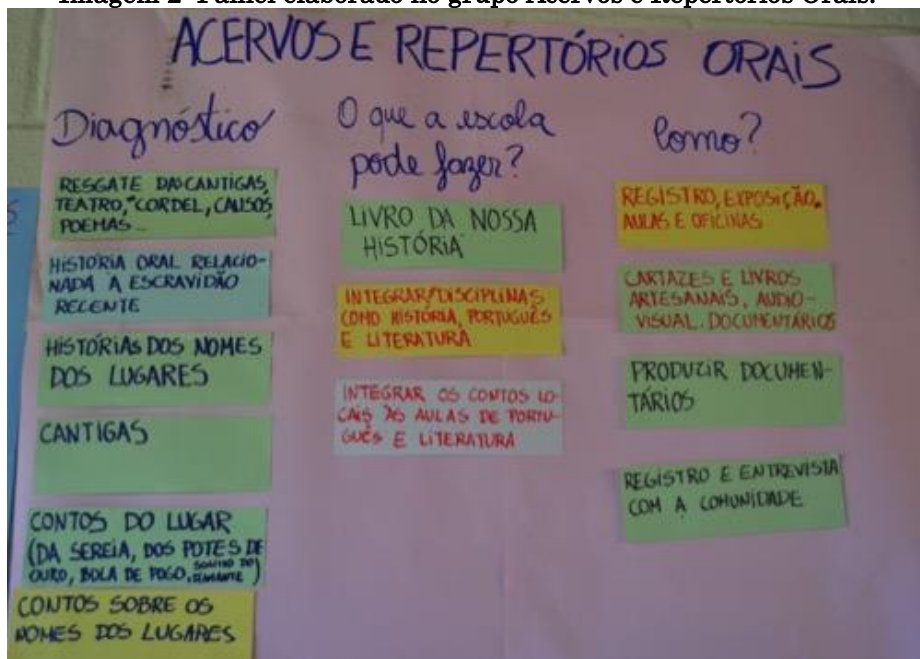 Imagem 2- Painel elaborado no grupo Acervos e Repertórios Orais.
ACERVOS E REPERTÓRIOS ORAIS
Diagnóstico
RESGATE DAS CANTIGAS,
TEATRO, CORDEL, CAUSOS,
POEMAS...
HISTÓRIA ORAL RELACIO-
NADA A ESCRAVIDÃO
RECENTE
HISTÓRIAS DOS NOMES
DOS LUGARES
CANTIGAS
CONTOS DO LUGAR
(DA SEREIA, DOS POTES DE
OURO, BOLA DE FOGO, SONHO DO
DIAMANTE)
CONTOS SOBRE OS
NOMES DOS LUGARES
O que a escola
pode fazer?
LIVRO DA NOSSA
HISTÓRIA
INTEGRAR DISCIPLINAS
COMO HISTÓRIA, PORTUGUÊS
E LITERATURA
INTEGRAR OS CONTOS LO-
CAIS ÀS AULAS DE PORTU-
GUÊS E LITERATURA
Como?
REGISTRO, EXPOSIÇÃO,
AULAS E OFICINAS
CARTAZES E LIVROS
ARTESANAIS, AUDIO-
VISUAL. DOCUMENTÁRIOS
PRODUZIR DOCUMEN-
TÁRIOS
REGISTRO E ENTREVISTA
COM A COMUNIDADE